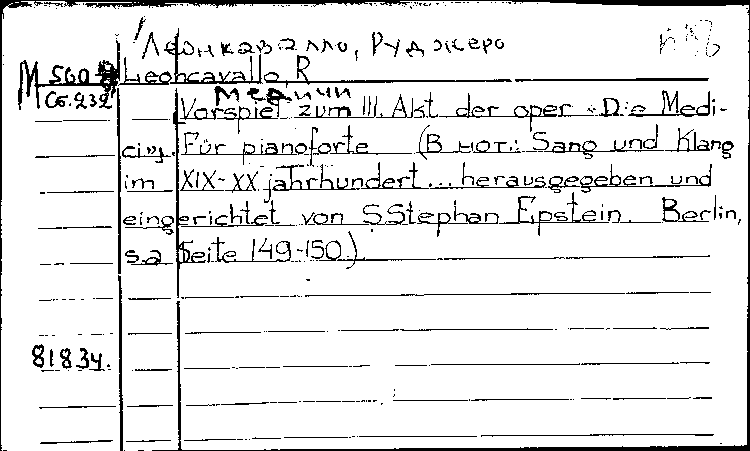 Леонкавалло, Руджеро
M 560 Leoncavallo, R
Сб.232 Медичи
Vorspiel zum III. Akt der oper «Die Medi-
ci». Für pianoforte (В нот.: Sang und Klang
im XIX-XX jahrhundert... herausgegeben und
eingerichtet von S Stephan Epstein. Berlin,
s.a Seite 149-150.)
81834.